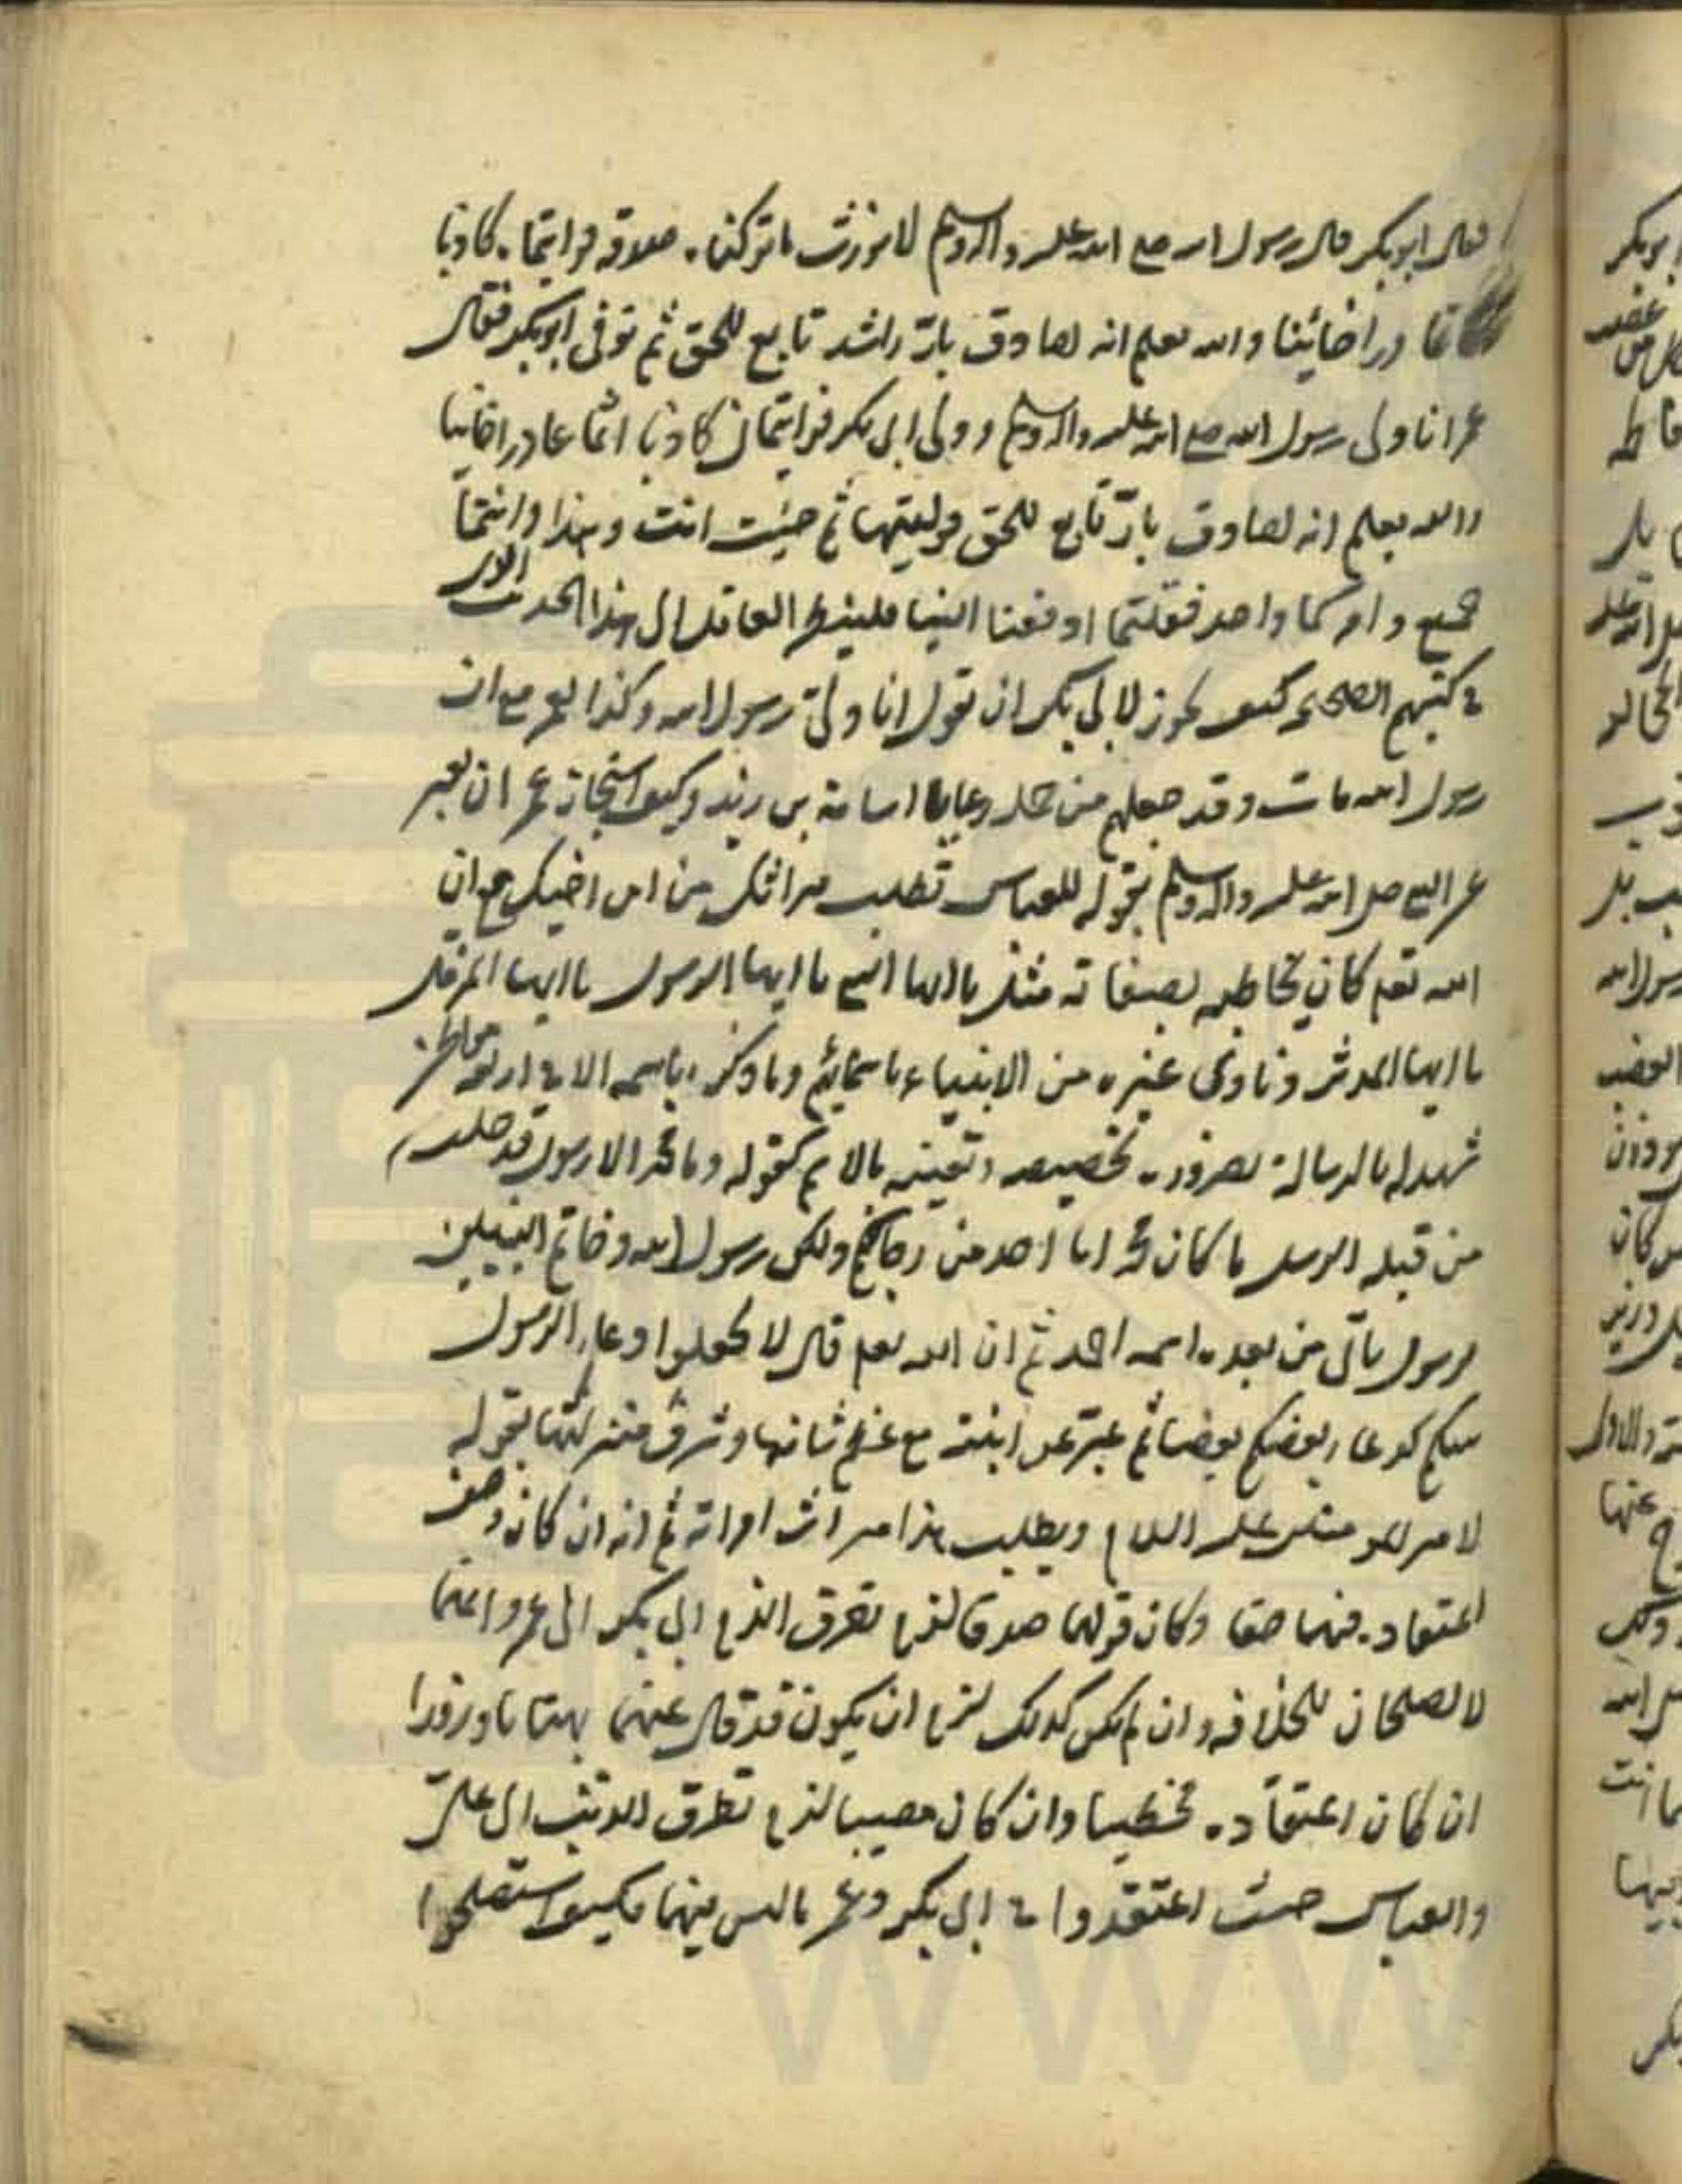 فقال ابو بكر قال رسول الله صلى الله عليه واله وسلم لا نورث ما تركناه صدقة فرايتماه كاذبا
اثما غادرا خائنا والله يعلم انه لصادق بارّ راشد تابع للحق ثم توفى ابو بكر فقال
عمر انا ولى رسول الله صلى الله عليه واله وسلم وولى ابى بكر فرايتمانى كاذبا اثما غادرا خائنا
والله يعلم انه لصادق بارّ تابع للحق فوليتها ثم جئت انت وهذا وانتما
جميع وامركما واحد فقلتما ادفعنا الينا فلينظر العاقل الى هذا الحديث الذى
فى كتبهم الصحيحة كيف يجوز لابى بكر ان يقول انا ولىّ رسول الله وكذا لعمر مع ان
رسول الله مات وقد جعلهم من جملة رعايا اسامة بن زيد وكيف استجاز عمر ان يعبر
عن النبى صلى الله عليه واله وسلم بقوله للعباس تطلب ميراثك من ابن اخيك مع ان
الله تعالى كان يخاطبه بصفاته مثل يا ايها النبى يا ايها الرسول يا ايها المزمل
يا ايها المدثر ونادى غيره من الانبياء باسمائهم وما ذكره باسمه الا فى اربعة مواطن
شهد له بالرسالة لضرورة تخصيصه وتعيّنه بالاسم كقوله وما محمد الا رسول قد خلت
من قبله الرسل ما كان محمد ابا احد من رجالكم ولكن رسول الله وخاتم النبيين
برسول ياتى من بعده اسمه احمد ثم ان الله تعالى قال لا تجعلوا دعاء الرسول
بينكم كدعاء بعضكم بعضا ثم عبّر عن ابنته مع عظم شانها وشرف منزلتها بقوله
لامير المومنين عليه السلام ويطلب هذا ميراث امراته ثم انه ان كان وصف
اعتقاده فيهما حقا وكان قولهما صدقا لزم تطرق الذم الى ابى بكر الى عمر وانهما
لا يصلحان للخلافة وان لم يكن كذلك لزم ان يكون قد قال عنهما بهتانا وزورا
ان كان اعتقاده مخطيا وان كان مصيبا لزم تطرق الذنب الى علىّ
والعباس حيث اعتقدوا فى ابى بكر وعمر ما ليس فيهما فكيف استصلحوا